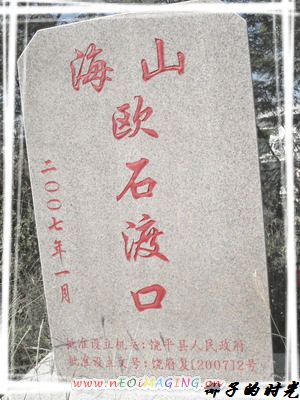 海山
欧石渡口
二〇〇七年一月
批准设立机关:饶平县人民政府
批准设立文号:饶府复[2007]2号
www.nEOiMAGING.cn
子的时光